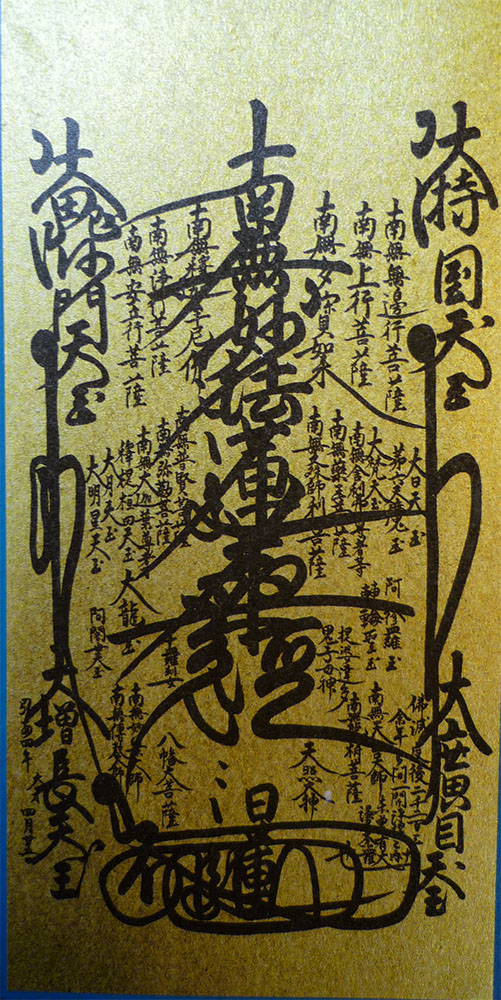 南無妙法蓮華経
大持国天玉
南無無邊行菩薩
南無上行菩薩
南無多寳如来
南無釋迦牟尼佛
南無浄行菩薩
南無安立行菩薩
大毗沙門天玉
大日天玉
第六天魔玉
大梵天玉
南無舎利弗尊者等
南無薬王菩薩
南無文殊師利菩薩
南無普賢菩薩
南無弥勒菩薩
南無大迦葉尊者
釋提桓因天玉
大月天玉
大明星天玉
阿修羅玉
轉輪聖玉
提婆達多
鬼子母神
十羅刹女
大龍玉
阿闍世大玉
大廣目天玉
南無天台大師
南無龍樹菩薩
天照大神
八幡大菩薩
南無妙樂大師
南無傳教大師
大増長天玉
日蓮